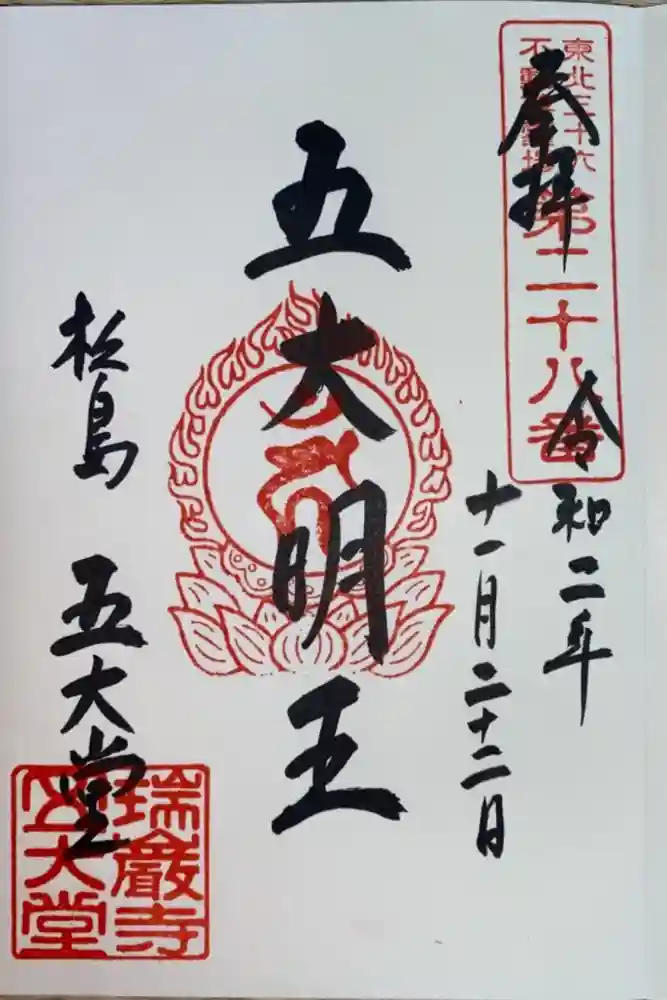 東北三十六
不動尊霊場
第二十八番
奉拝
令和二年
十一月二十二日
五大明王
松島 五大堂
瑞巌寺
五大堂